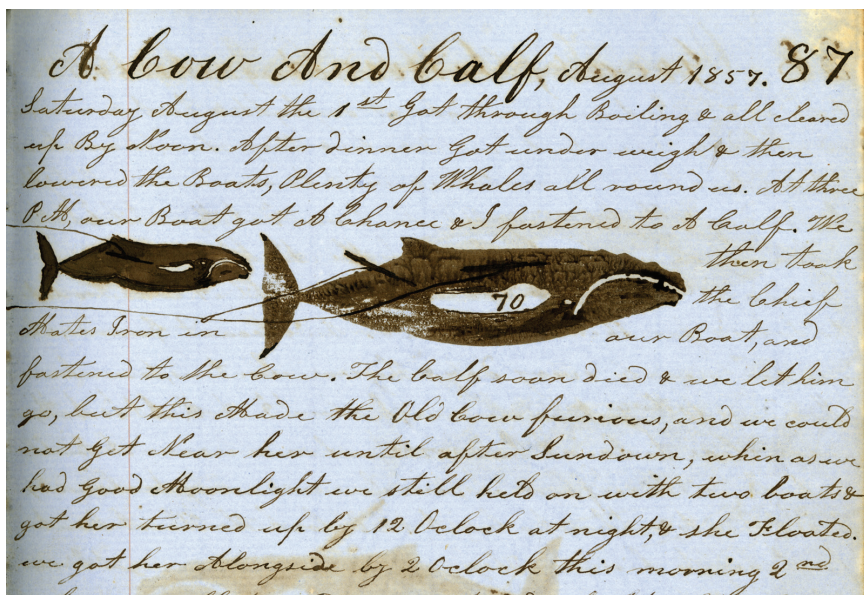 A Cow And Calf, August 1857. 87
Saturday August the 1st Got through Boiling & all cleared
up By Noon. After dinner Got under weigh & then
lowered the Boats, Plenty of Whales all round us. At three
P M, our Boat got A Chance & I fastened to A Calf. We
then took
70
the Chief
Mates Iron in our Boat, and
fastened to the Cow. The Calf soon died & we let him
go, but this Made the Old Cow furious, and we could
not Get Near her until after Sundown, whin as we
had Good Moonlight we still held on with two boats &
got her turned up by 12 Oclock at night, & she Floated.
we got her Alongside by 2 Oclock this morning 2nd